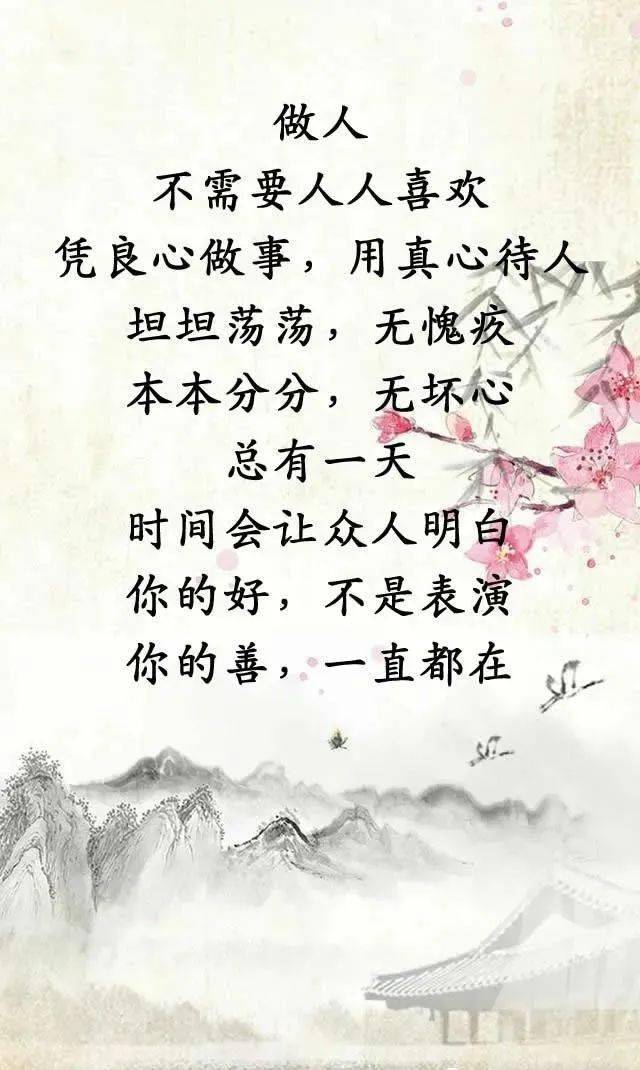 做人
不需要人人喜欢
凭良心做事，用真心待人
坦坦荡荡，无愧疚
本本分分，无坏心
总有一天
时间会让众人明白
你的好，不是表演
你的善，一直都在